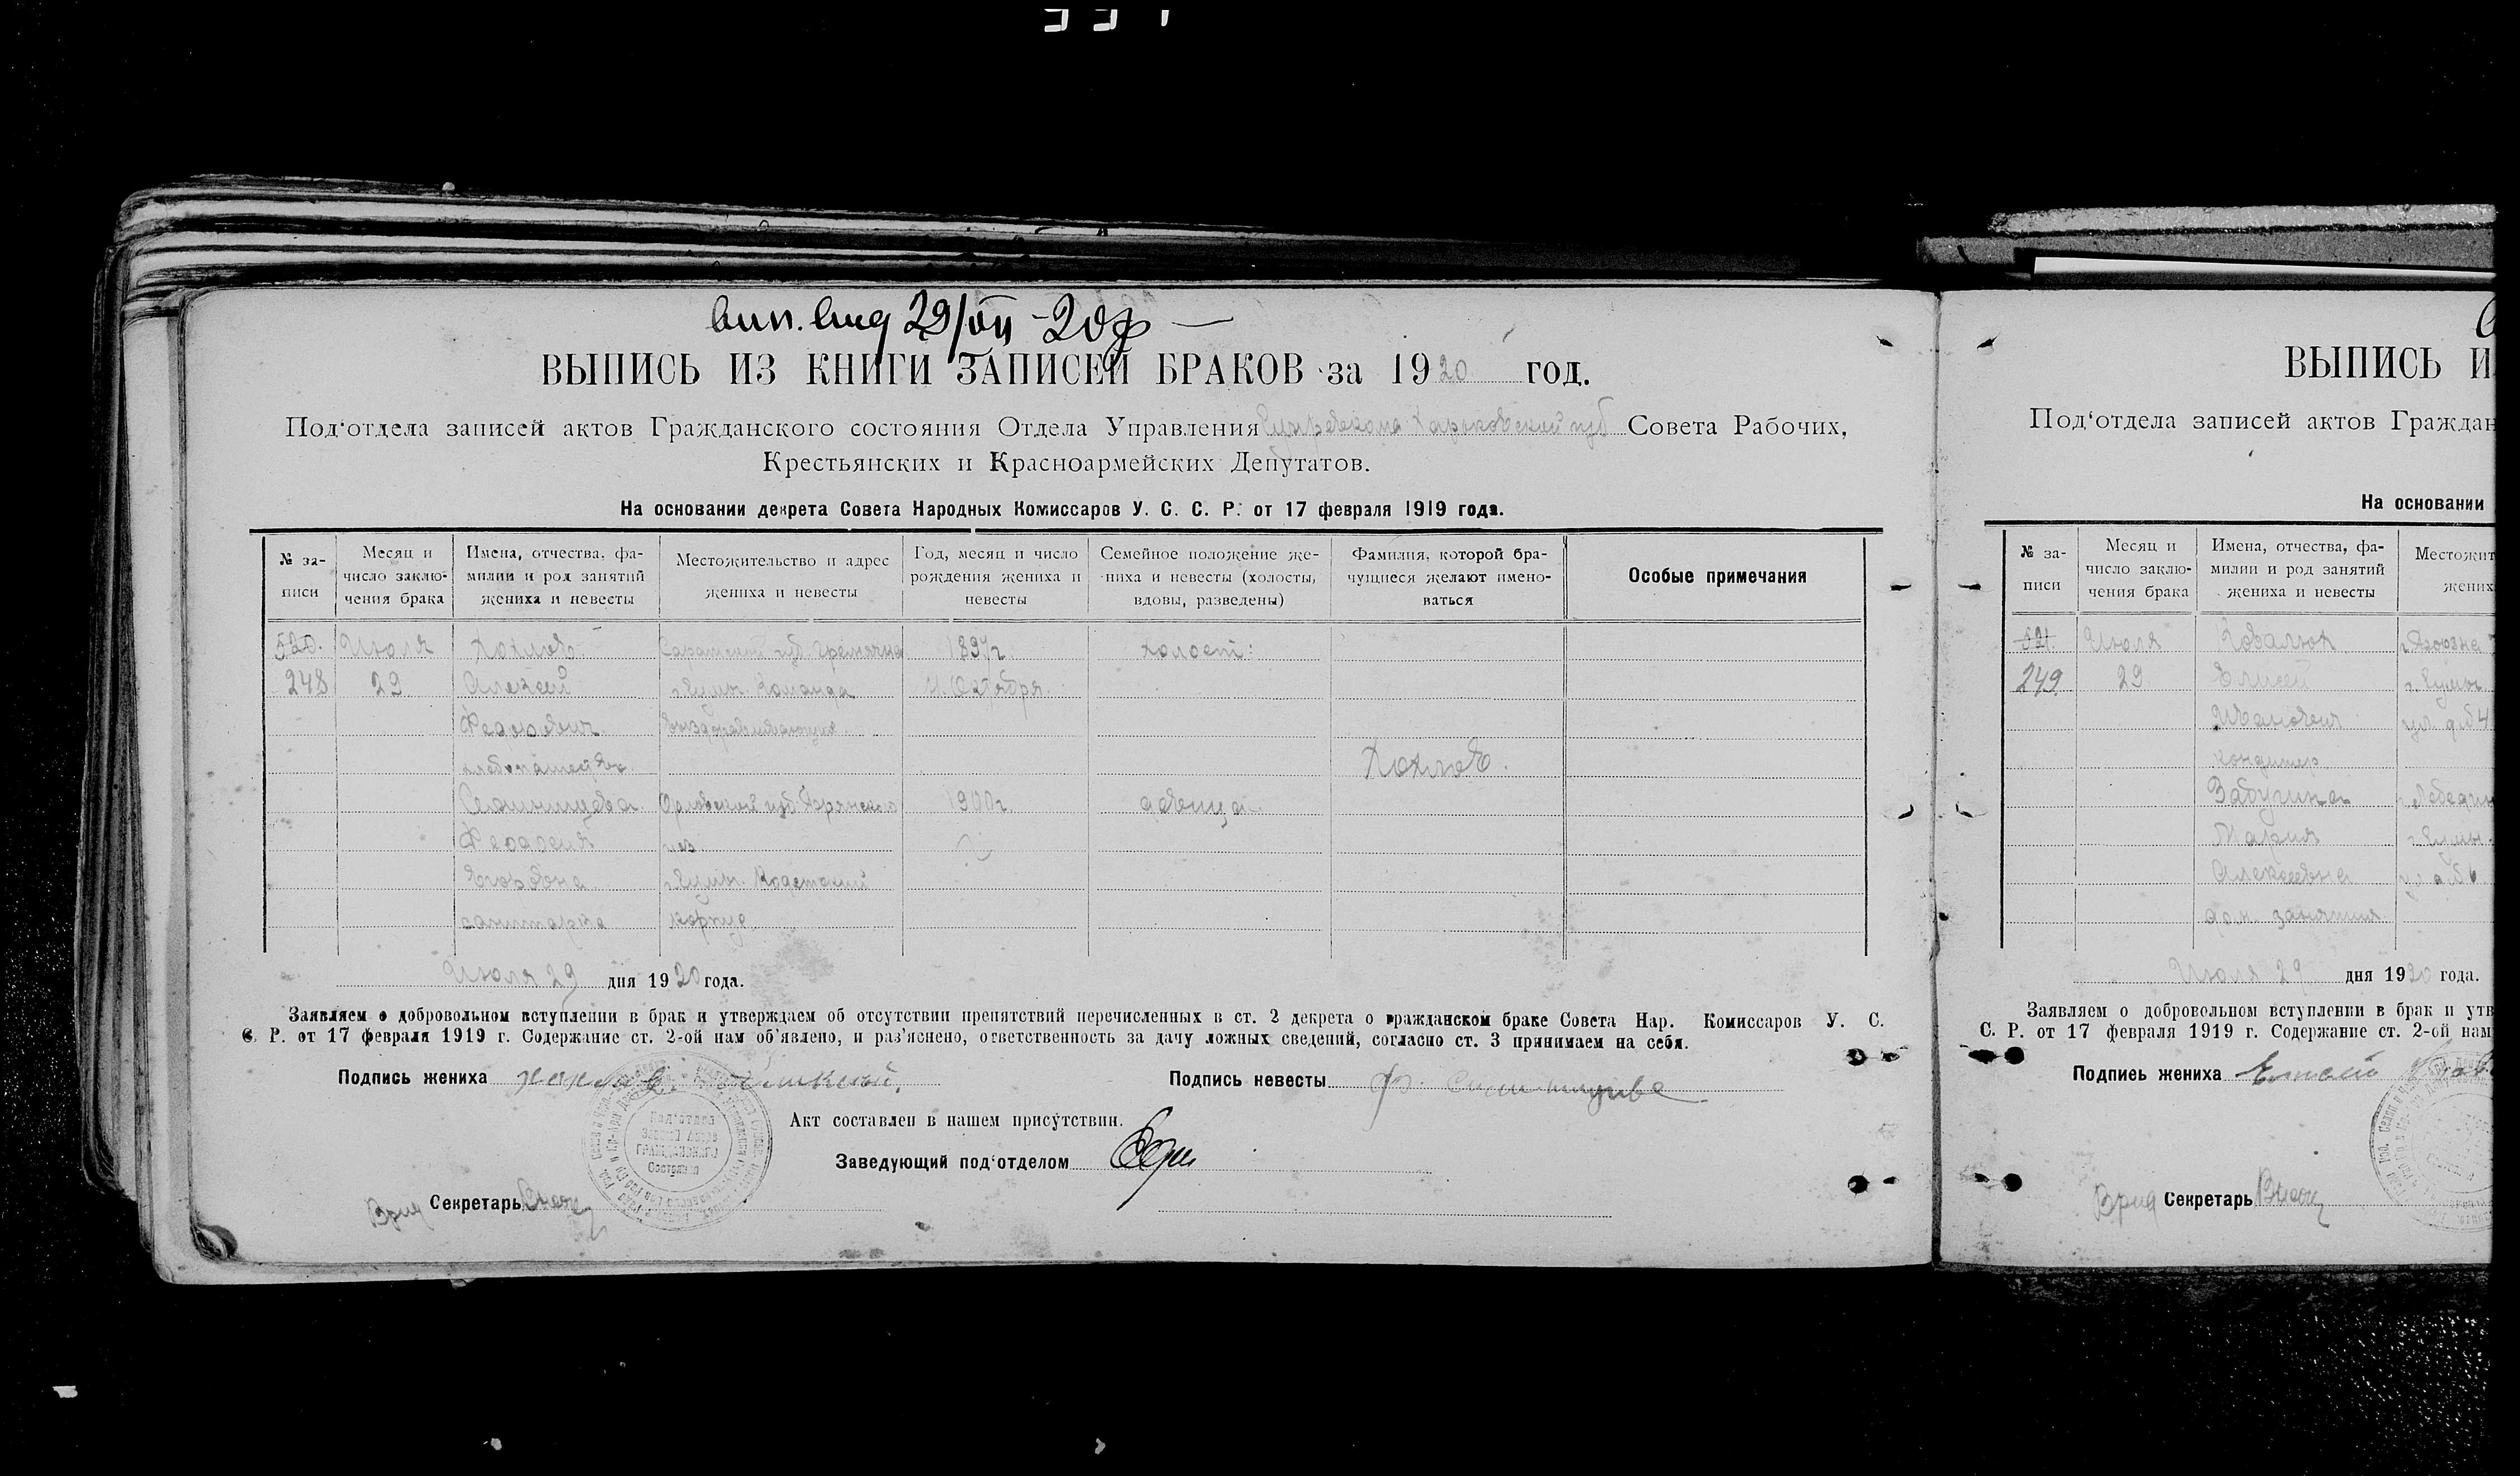 29/VII - 20 г
ВЫПИСЬ ИЗ КНИГИ ЗАПИСЕЙ БРАКОВ за 1920 год.
Под‘отдела записей актов Гражданского состояния Отдела Управления Харьковской губ Совета Рабочих,
Крестьянских и Красноармейских Депутатов.
На основании декрета Совета Народных Комиссаров У. С. С. Р. от 17 февраля 1919 года.
№ за-
писи
Месяц и
число заклю-
чения брака
Имена, отчества, фа-
милии и род занятий
жениха и невесты
Местожительство и адрес
жениха и невесты
Год, месяц и число
рождения жениха и
невесты
Семейное положение же-
ниха и невесты (холосты,
вдовы, разведены)
Фамилия, которой бра-
чущиеся желают имено-
ваться
Особые примечания
520. Июля Хохлов Саратской губ. 1897г. холост:
248 29 Алексей г. Сумы. Команда Октября.
Федорович выздоравливающих
Хохлов.
Орловской губ. Брянского 1900г. девица
Феодосия уез.
Егоровна г. Сумы. Кадетский
санитарка корпус
Июля 29 дня 1920 года.
Заявляем о добровольном вступлении в брак и утверждаем об отсутствии препятствий перечисленных в ст. 2 декрета о гражданском браке Совета Нар. Комиссаров У. С.
С. Р. от 17 февраля 1919 г. Содержание ст. 2-ой нам об‘явлено, и раз‘яснено, ответственность за дачу ложных сведений, согласно ст. 3 принимаем на себя.
Подпись жениха Хохлов
Подпись невесты Ф.
Акт составлен в нашем присутствии.
Заведующий под‘отделом
Врид Секретарь
Под‘отдел
Записей Актов
ГРАЖДАНСКОГО
Состояния
ВЫПИСЬ И
Под‘отдела записей актов Граждан
На основании
№ за-
писи
Месяц и
число заклю-
чения брака
Имена, отчества, фа-
милии и род занятий
жениха и невесты
Местожит
жених
521. Июля Ковалюк
249. 29 Елисей г. Сумы
Иванович
кондитер
Забугина г. Лебедин
Мария г. Сумы.
Алексеевна
дом. занятия
Июля 29 дня 1920 года.
Заявляем о добровольном вступлении в брак и утв
С. Р. от 17 февраля 1919 г. Содержание ст. 2-ой нам
Подпись жениха Елисей
Врид Секретарь